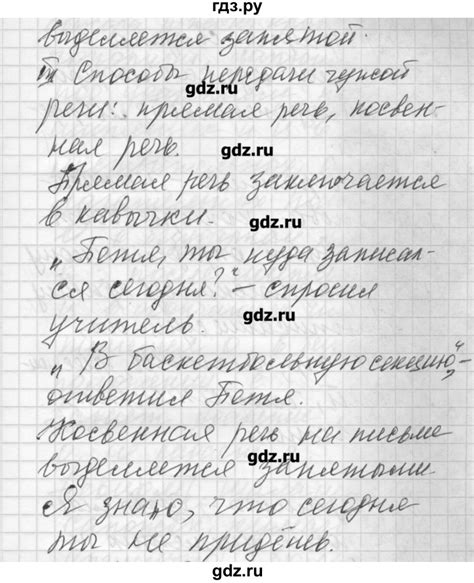 гдз.ру
выделяется запятой.
III Способы передачи чужой
gdz.ru
речи: прямая речь, косвен-
gdz.ru
ная речь.
gdz.ru
Прямая речь заключается
в кавычки.
gdz.ru
„Петя, ты куда записал-
gdz.ru
ся сегодня?“ – спросил
gdz.ru
учитель.
gdz.ru
„В баскетбольную секцию“, –
gdz.ru
ответил Петя.
gdz.ru
Косвенная речь на письме
gdz.ru
выделяется запятыми
Я знаю, что сегодня
gdz.ru
ты не придёшь.
gdz.ru